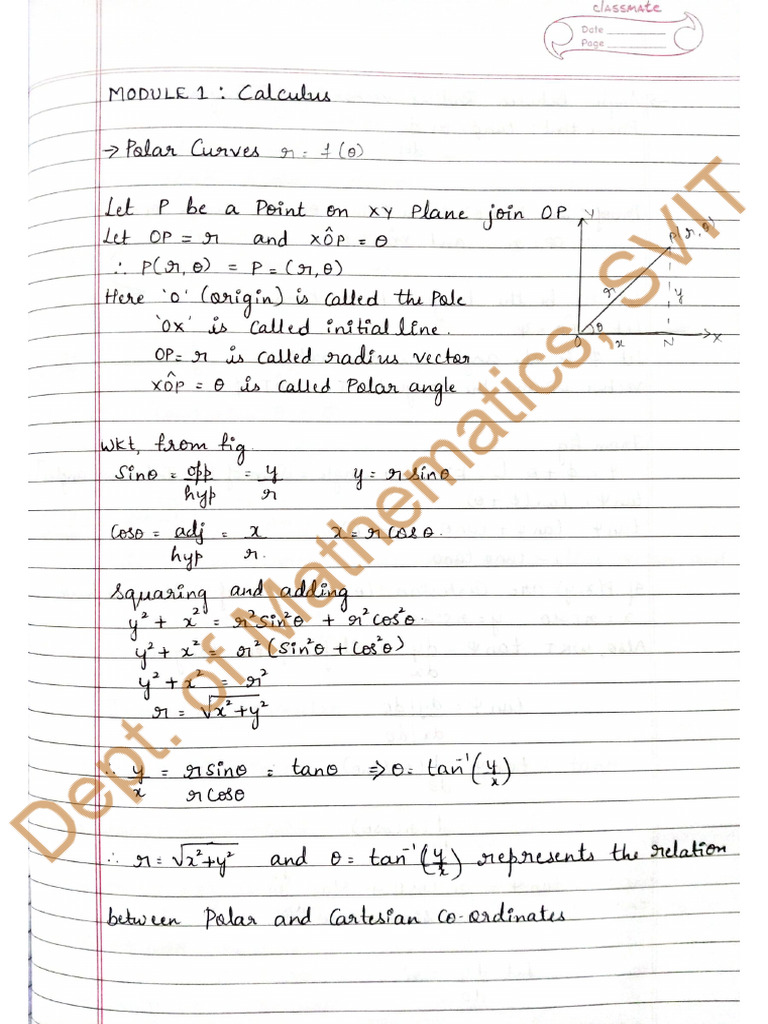 classmate
Date
Page
MODULE 1 : Calculus
→ Polar Curves r = f(θ)
Let P be a Point on XY Plane join OP
Let OP = r and XÔP = θ
∴ P(r, θ) = P = (r, θ)
Here 'O' (origin) is called the Pole
'OX' is called initial line.
OP = r is called radius vector
XÔP = θ is called Polar angle
Y
P(r, θ)
r
y
θ
O x N X
WKT, from fig.
Sinθ = opp/hyp = y/r y = r sinθ
Cosθ = adj/hyp = x/r. x = r cosθ.
Squaring and adding
y² + x² = r²sin²θ + r²cos²θ.
y² + x² = r²(sin²θ + cos²θ)
y² + x² = r²
r = √x²+y²
∴ y/x = r sinθ/r cosθ = tanθ ⇒ θ = tan⁻¹(y/x)
∴ r = √x²+y² and θ = tan⁻¹(y/x) represents the relation
between Polar and Cartesian Co-ordinates
Dept. of Mathematics, SVIT